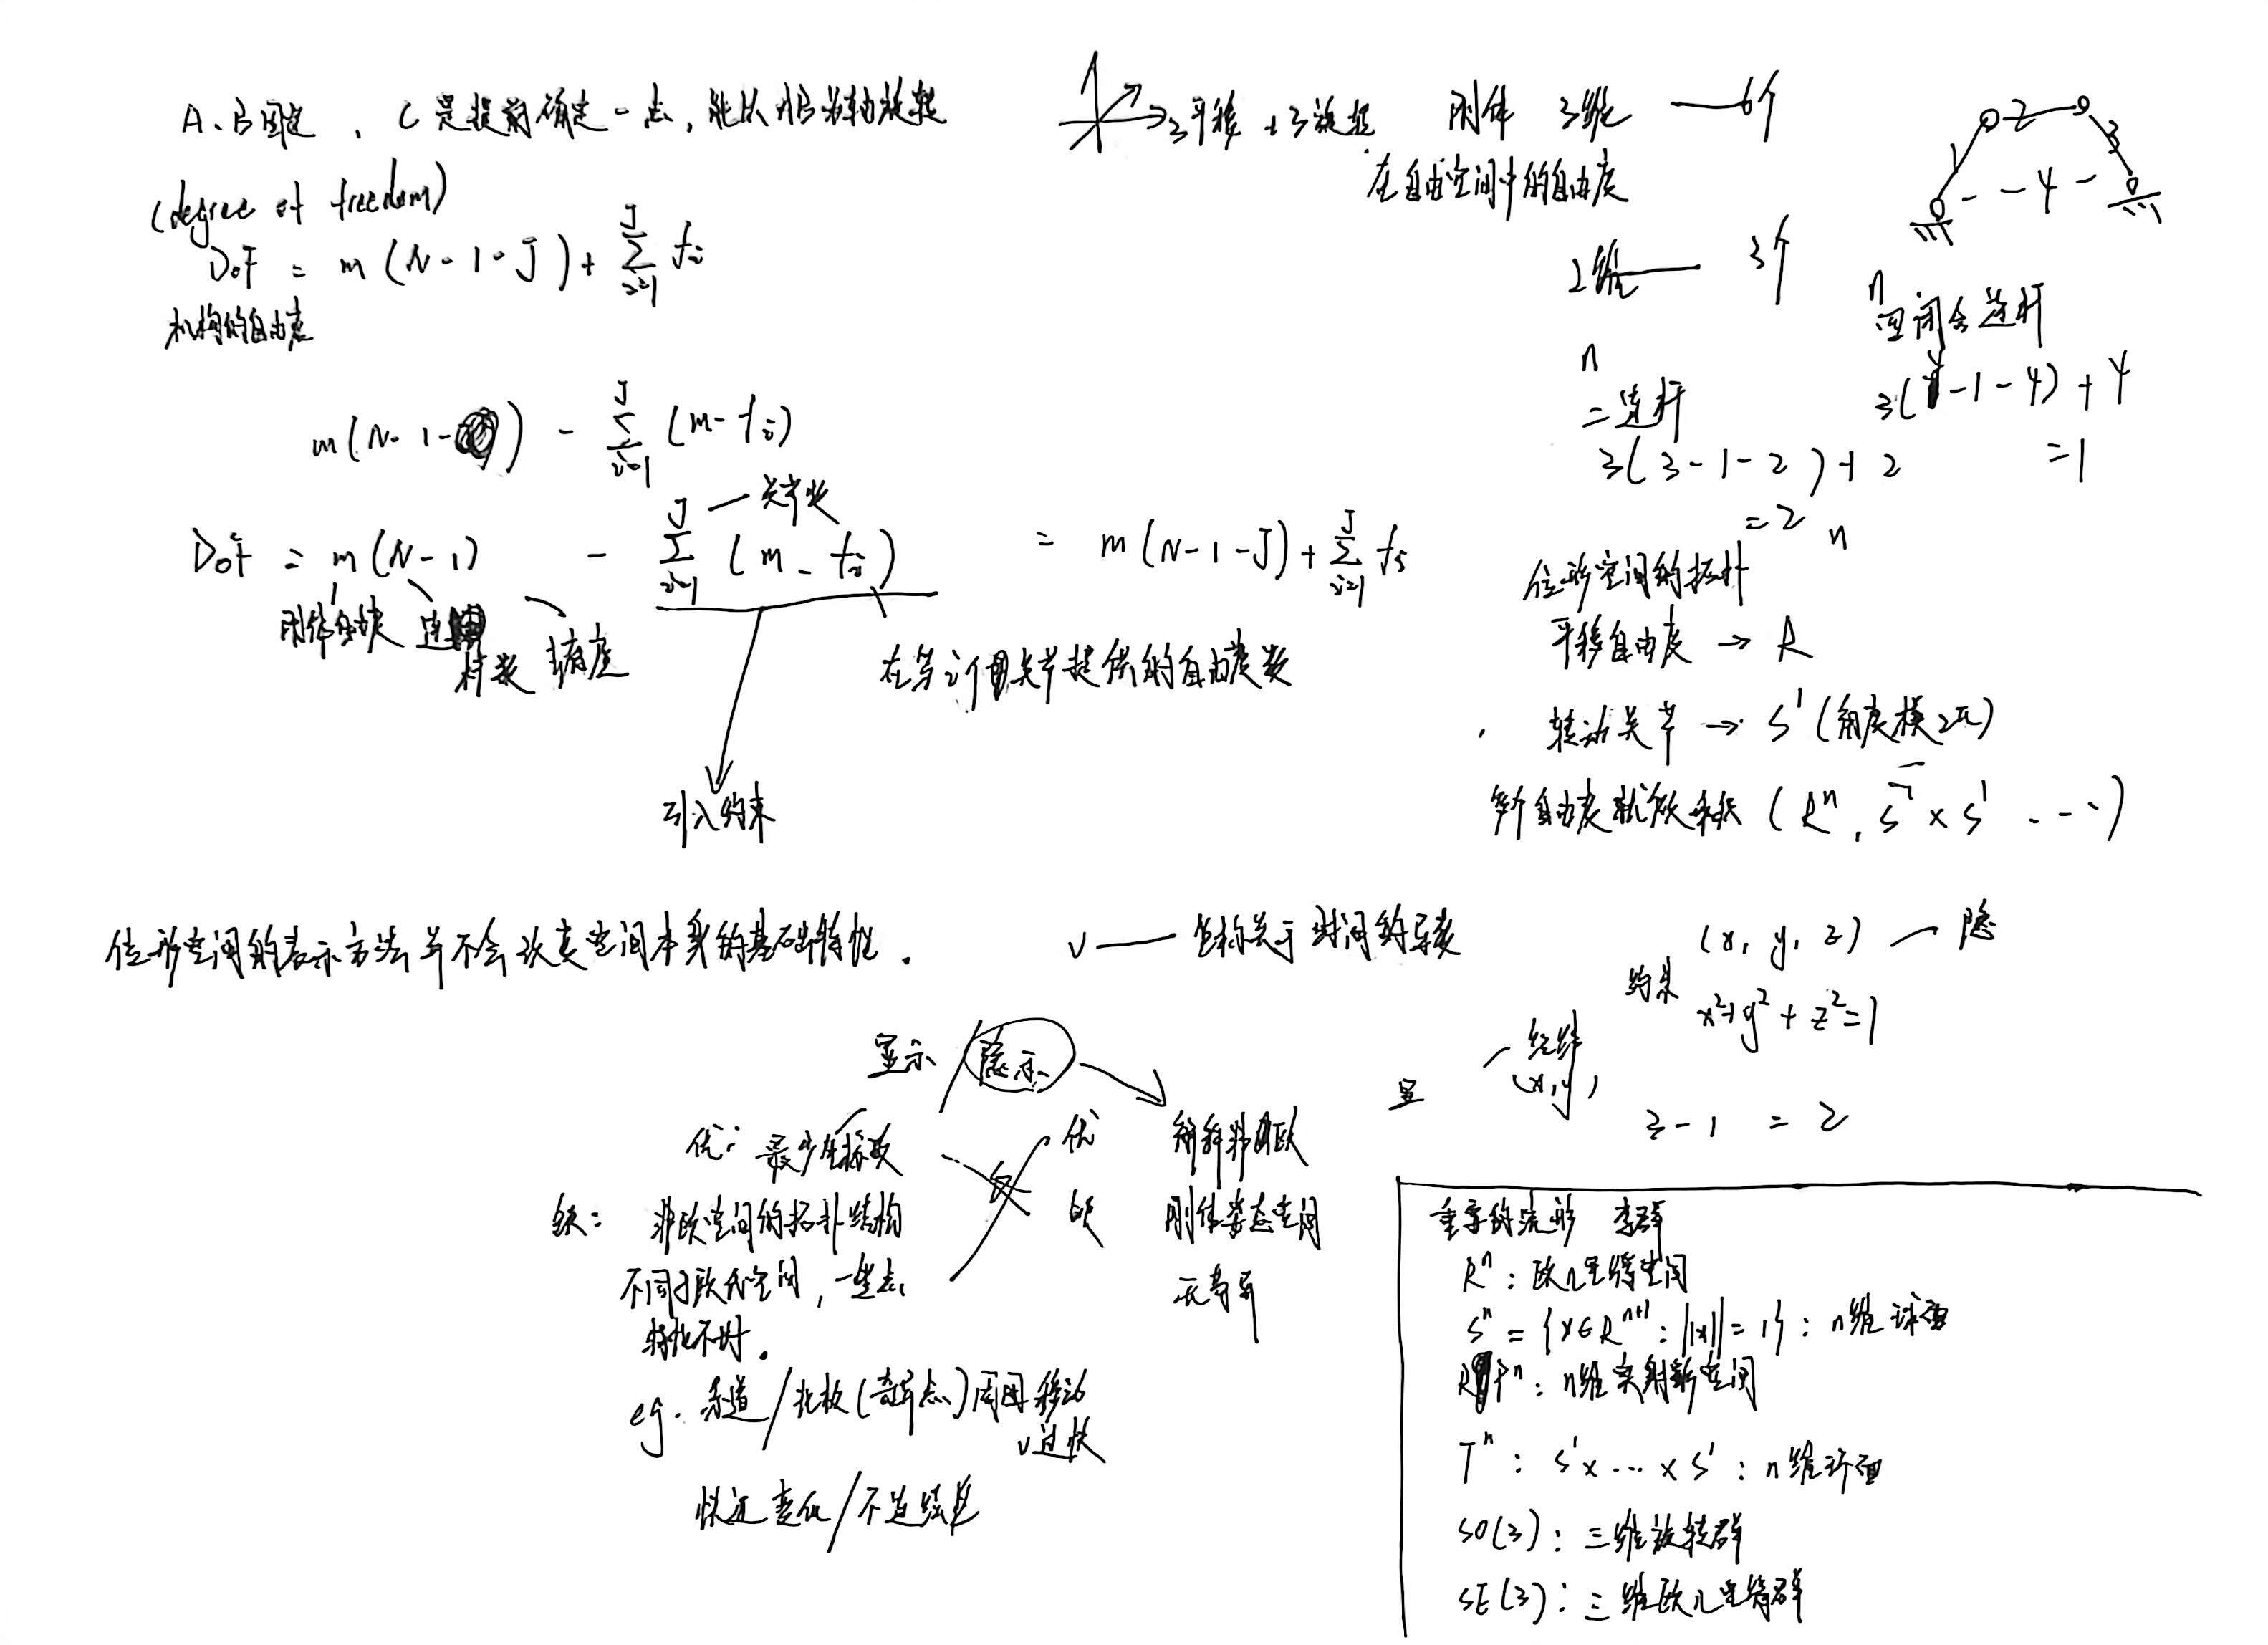 A、B固定，C是提前确定一点，能以AB为轴旋转
(degree of freedom)
DoF = m(N-1-J)+∑fi
J
i=1
机构的自由度
m(N-1-) - ∑(m-fi)
J
i=1
J — 关节数
DoF = m(N-1) - ∑(m-fi) = m(N-1-J)+∑fi
i=1
刚体自由度 连杆数
在第i个关节提供的自由度数
引入约束
3平移+3旋转 刚体 3维 — 6个
在自由空间中的自由度
2维 — 3个
1 2 3
- - 4 -
n
四闭合连杆
3(4-1-4)+4
=1
n
二连杆
3(3-1-2)+2
=2 n
位形空间的拓扑
平移自由度 → R
转动关节 → S¹(角度模2π)
多个自由度就做乘积 (Rⁿ, S¹×S¹ ...)
位形空间的表示方法并不会改变空间本身的基础特性。
v — 坐标关于时间的导数
(x, y, z) — 隐
约束 x²+y²+z²=1
显 经纬
(x,y)
3-1 = 2
显示/隐示
优：最少坐标数
缺：非欧空间的拓扑结构
不同于欧氏空间，一些点
特性不对。
eg. 赤道/北极(奇异点)周围移动
v过快
快速变化/不连续
反
优
缺
刚体姿态空间
无奇异
重要的流形 李群
Rⁿ：欧几里得空间
Sⁿ = {x∈Rⁿ⁺¹: ||x||=1}：n维球面
RPⁿ：n维实射影空间
Tⁿ：S¹×...×S¹：n维环面
SO(3)：三维旋转群
SE(3)：三维欧几里得群